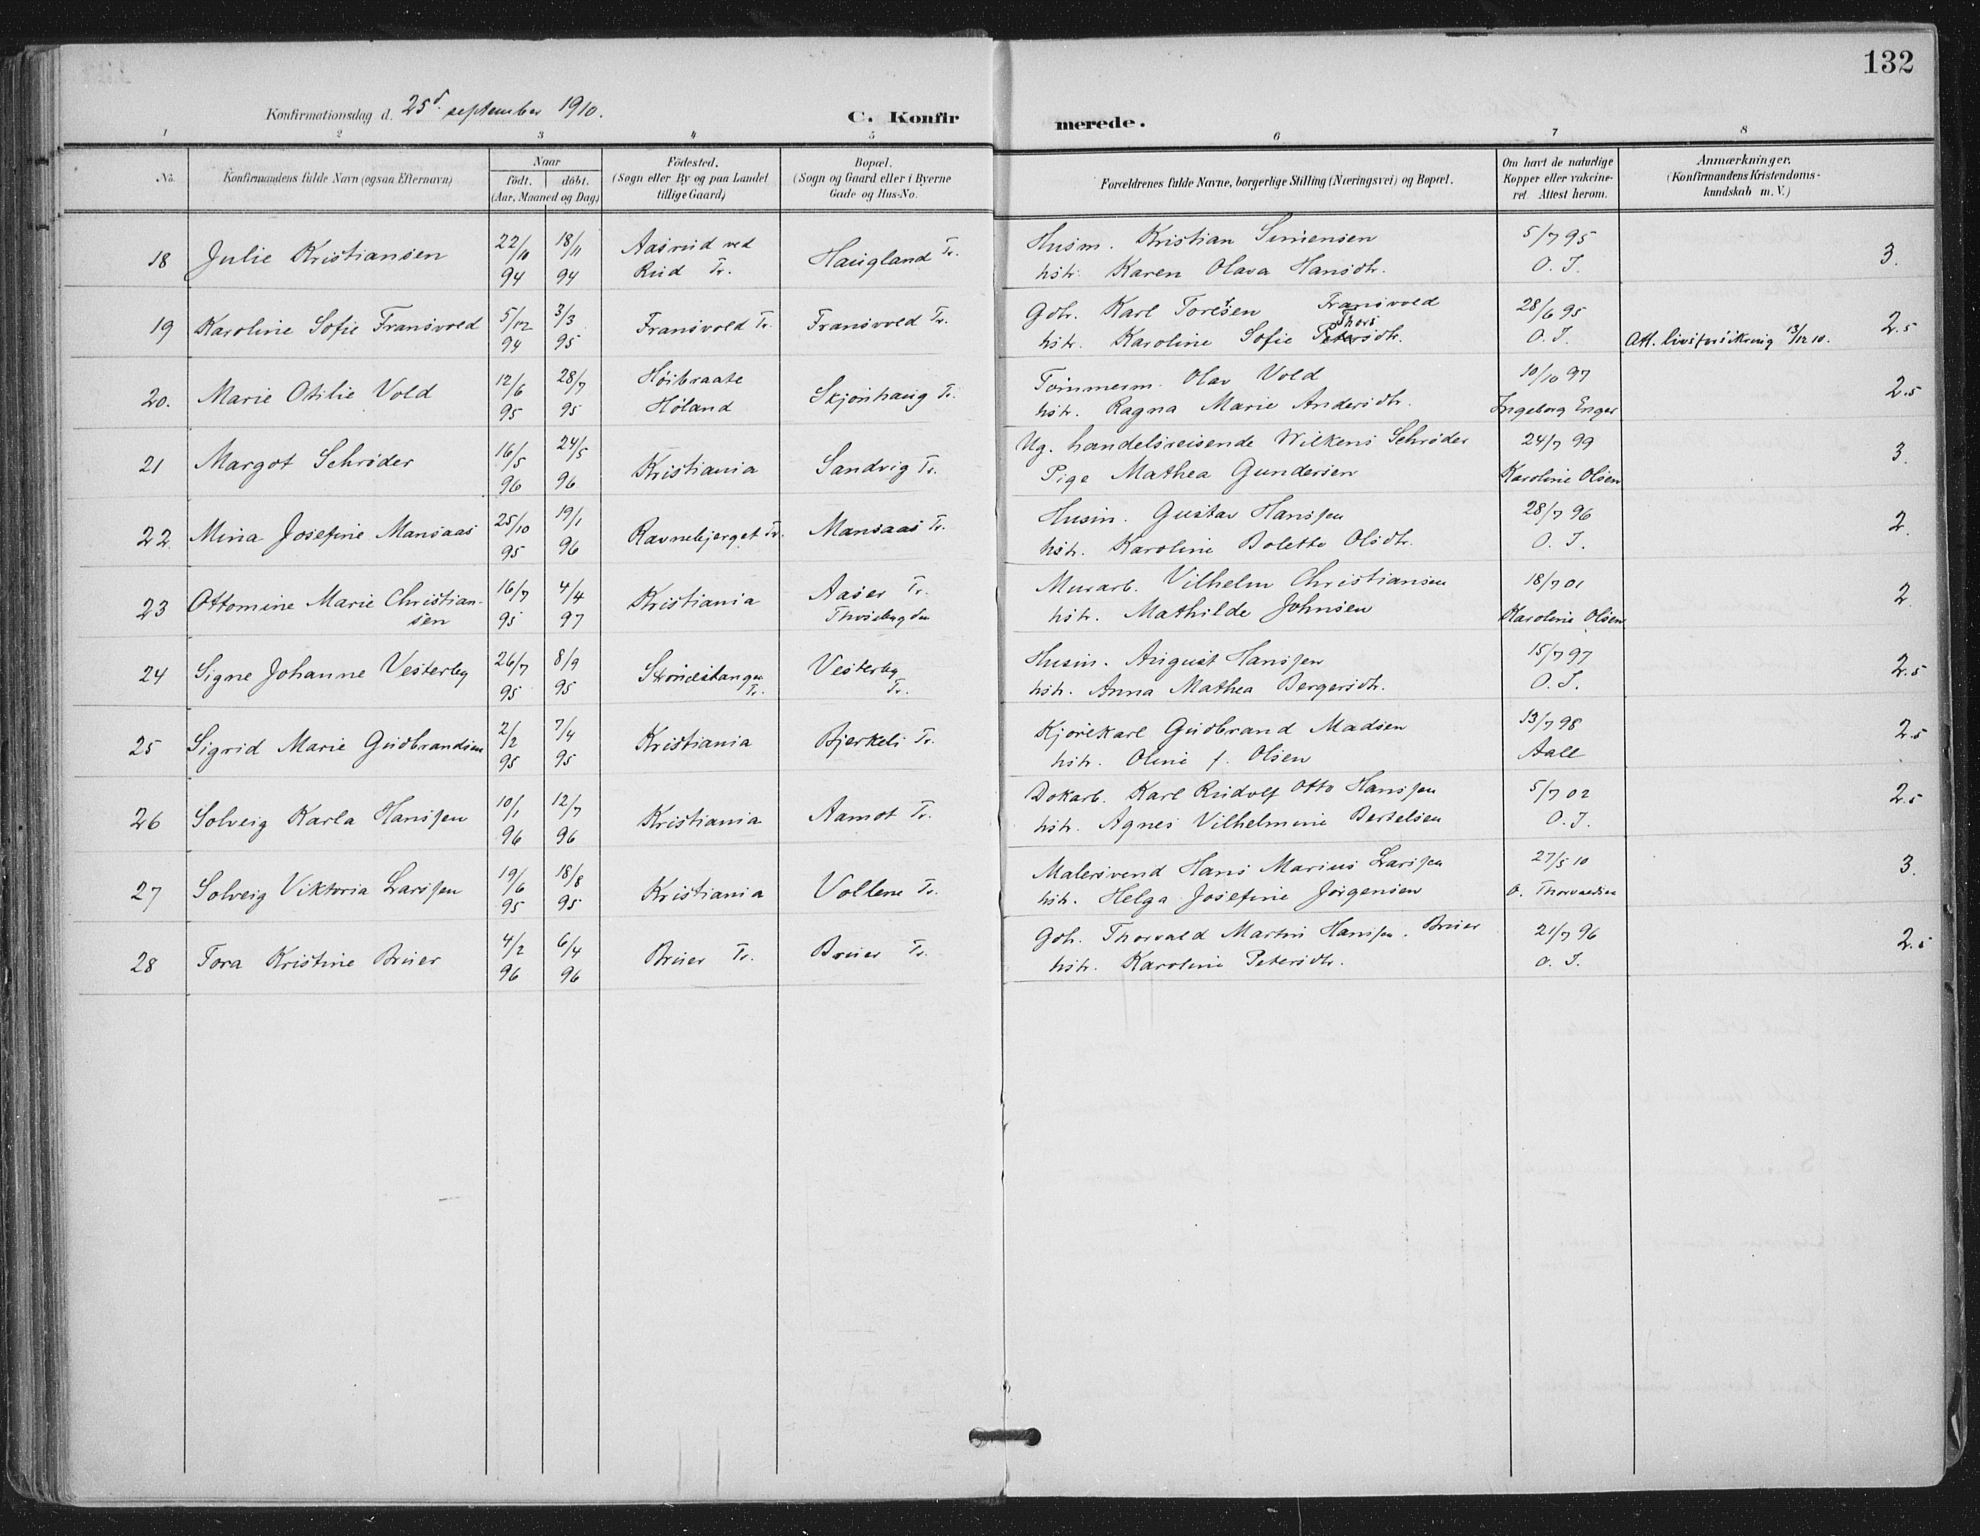 132
Konfirmationsdag d. 25d september 1910.
C. Konfirmerede.
1 2 3 4 5 6 7 8
No. Konfirmandens fulde Navn (ogsaa Efternavn) Naar født. døbt. (Aar, Maaned og Dag) Fødested. (Sogn eller By og paa Landet tillige Gaard) Bopæl. (Sogn og Gaard eller i Byerne Gade og Hus-No. Forældrenes fulde Navne, borgerlige Stilling (Næringsvei) og Bopæl. Om havt de naturlige Kopper eller vakcineret. Attest herom. Anmærkninger. (Konfirmandens Kristendomskundskab m. V.)
18 Julie Kristiansen 22/10 94 18/11 94 Aasrud ved Rud Tr. Haugland Tr. Husm. Kristian Simensen 5/7 95 3.
hstr. Karen Olava Hansdtr. O. J.
19 Karoline Sofie Fransvold 5/12 94 3/3 95 Fransvold Tr. Fransvold Tr. Gdbr. Karl Toresen Fransvold 28/6 95 2.5
hstr. Karoline Sofie Thorsdtr. O. J. Att. livsforsikring 13/12 10.
20. Marie Otilie Vold 12/6 95 28/7 95 Høibraate Høland Skjønhaug Tr. Tømmerm. Olav Vold 10/10 97 2.5
hstr. Ragna Marie Andersdtr. Ingeborg Enger
21 Margot Schrøder 16/5 96 24/5 96 Kristiania Sandvig Tr. Ug. handelsreisende Wilkens Schrøder 24/7 99 3.
Pige Mathea Gundersen Karoline Olsen
22. Mina Josefine Mansaas 25/10 95 19/1 96 Ravnebjerget Tr. Mansaas Tr. Husm. Gustav Hanssen 28/7 96 2.
hstr. Karoline Bolette Olsdtr. O. J.
23 Ottomine Marie Christiansen 16/7 95 4/4 97 Kristiania Aaser Tr. Murarb. Vilhelm Christiansen 18/7 01 2.
hstr. Mathilde Johnsen Karoline Olsen
24 Signe Johanne Vesterby 26/7 95 8/9 95 Tr. Vesterby Tr. Husm. August Hanssen 15/7 97 2.5
hstr. Anna Mathea Bergersdtr. O. J.
25 Sigrid Marie Gudbrandsen 2/2 95 7/4 95 Kristiania Bjerkeli Tr. Kjørekarl Gudbrand Madsen 13/7 98 2.5
hstr. Oline f. Olsen Aall
26 Solveig Karla Hanssen 10/1 96 12/7 96 Kristiania Aamot Tr. Dokarb. Karl Rudolf Otto Hanssen 5/7 02 2.5
hstr. Agnes Vilhelmine Bertelsen O. J.
27 Solveig Viktoria Larssen 19/6 95 18/8 95 Kristiania Vollene Tr. Malersvend Hans Marius Larssen 27/5 10 3.
hstr. Helga Josefine Jørgensen O. Thorvaldsen
28 Tora Kristine Bruer 4/2 96 6/4 96 Bruer Tr. Bruer Tr. Gdbr. Thorvald Martin Hanssen. Bruer 21/7 96 2.5
hstr. Karoline Petersdtr. O. J.